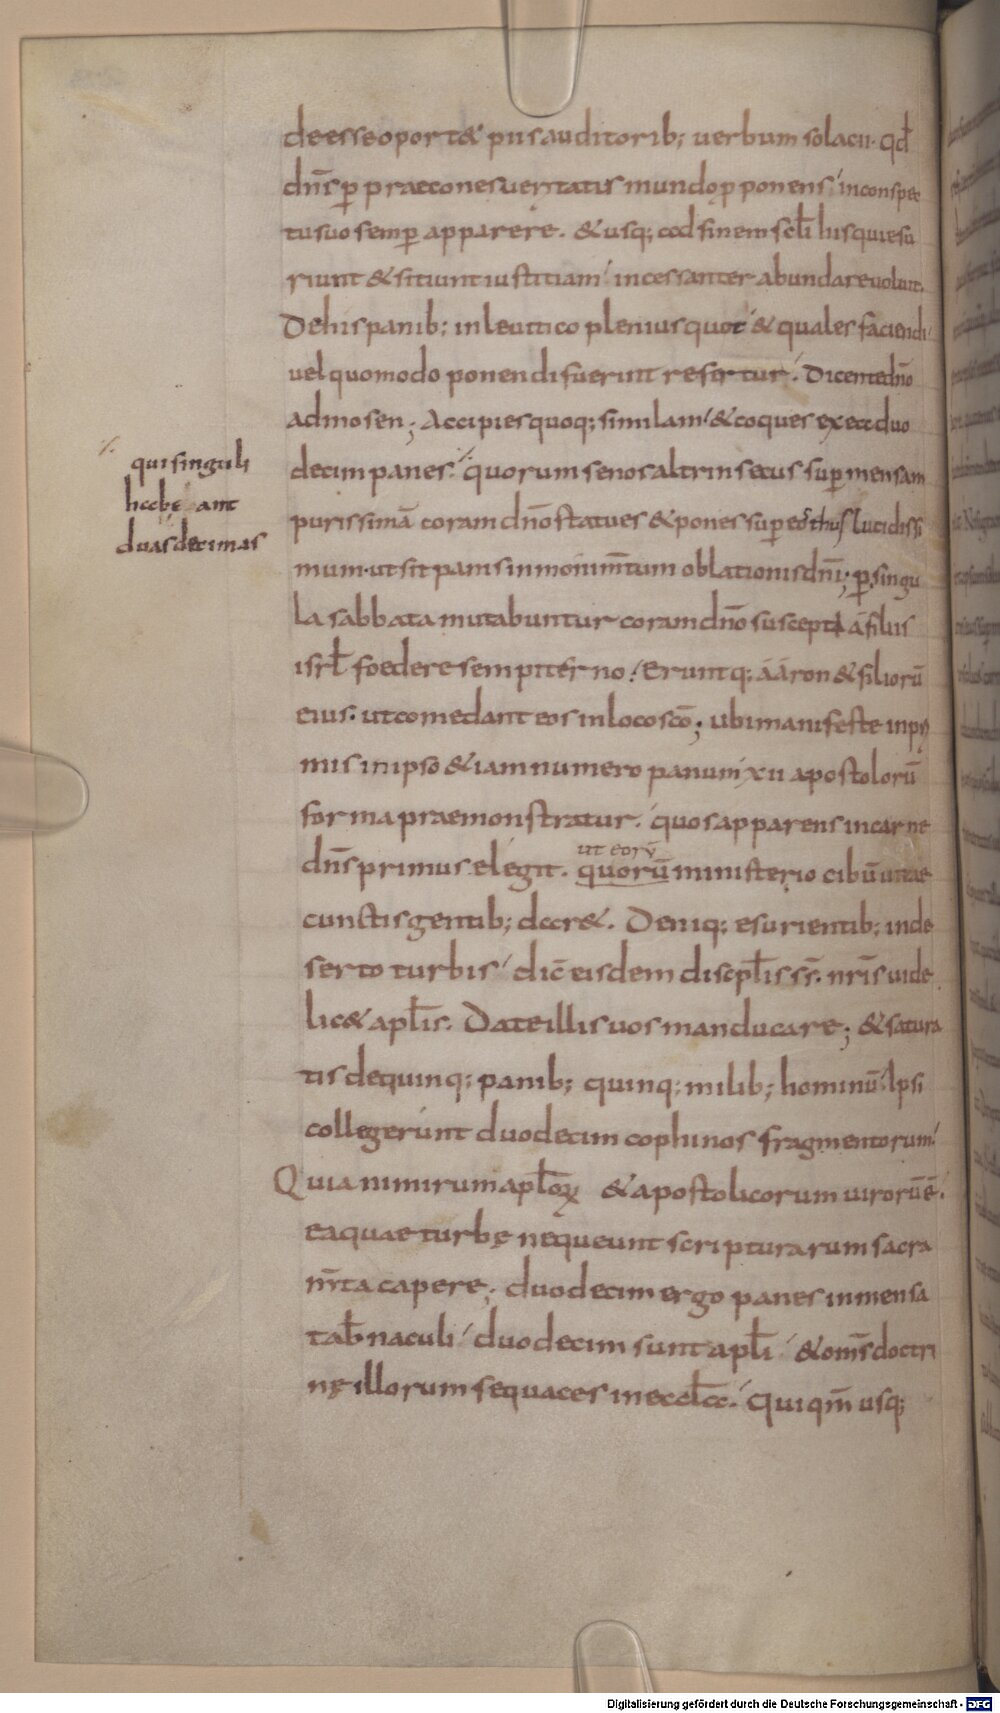 deesseoport& piisauditorib; uerbum solacii. qd̄
dn̄s p̄ praeconesueritatis mundo ꝓponens inconspec
tusuo semp̄ apparere. & usq; ad finem scl̄i hisquiesu
riunt & sitiunt iustitiam incessanter abundareuoluit.
Dehispanib; inleuitico plenius quot & quales faciendi
uel quomodo ponendi fuerint refertur. Dicentedn̄o
admosen; Accipiesquoq; similam & coques exea duo
decim panes. quorum senos altrinsecus sup̄ mensam
purissimā coram dn̄o statues & pones sup̄ eos thus lucidissi
mum. utsit panis inmonimm̄tum oblationisdn̄i; p̄ singu
la sabbata mutabuntur coramdn̄o suscepti afiliis
isrl̄ foedere sempiterno. Eruntq; ááron & filiorū
eius. utcomedant eos inlocosc̄o; ubimanifeste inpri
mis inipso & iam numero panum xii apostolorū
forma praemonstratur. quos apparens incarne
dn̄s primus elegit. quorū ministerio cibū uitae
ut eorū
cunctis gentib; dar&. Deniq; esurientib; inde
serto turbis dic̄ eisdem discipl̄is sr̄. nr̄is uide
lic& apl̄is. Date illis uos manducare; & satura
tis dequinq; panib; quinq; milib; hominū Ipsi
collegerunt duodecim cophinos fragmentorum.
Quia nimirum apl̄oꝝ & apostolicorum uirorū ē.
eaquae turbę nequeunt scripturarum sacra
mt̄a capere; duodecim ergo panes inmensa
tab̄naculi duodecim sunt apl̄i & oms̄ doctri
nę illorum sequaces inaeccl̄a. Qui qm̄ usq;
qui singuli
habeant
duas decimas
Digitalisierung gefördert durch die Deutsche Forschungsgemeinschaft - DFG